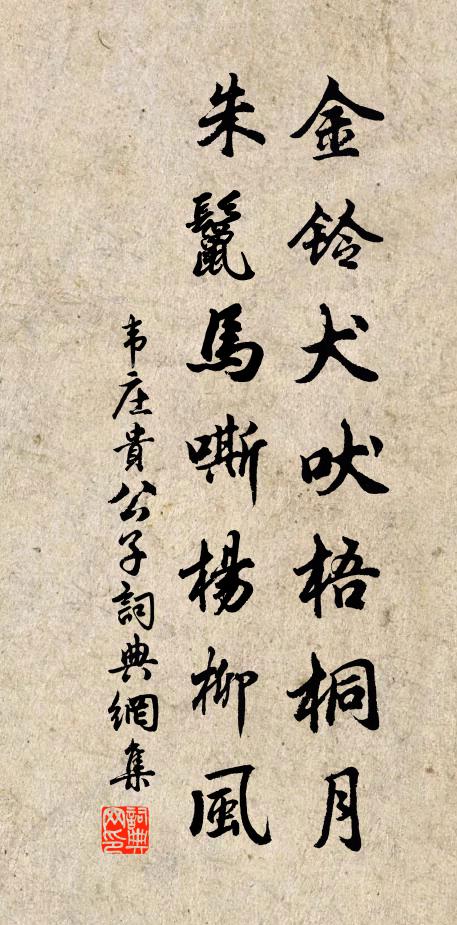 金鈴犬吠梧桐月
朱鬣馬嘶楊柳風
韦庄貴公子詞典網集
詞典网印